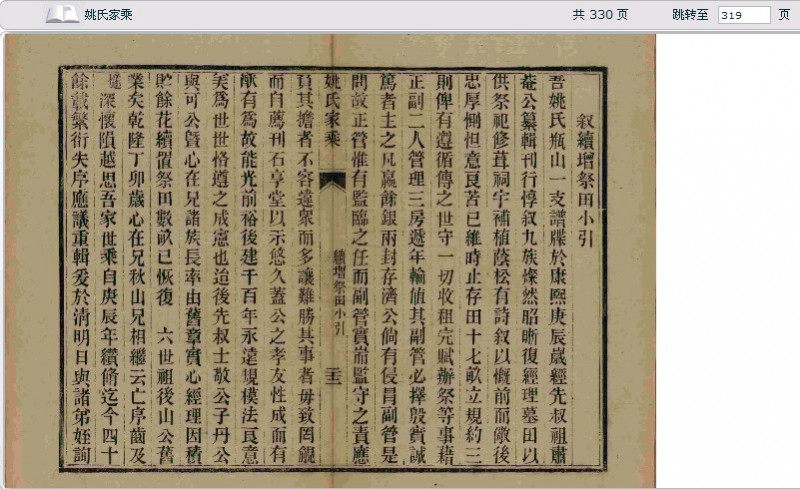 姚氏家乘
共 330 页
跳转至 319 页
叙續增祭田小引
吾姚氏瓶山一支譜牒於康熙庚辰歲經先叔祖肅
菴公纂輯刊行惇叙九族燦然昭晰復經理墓田以
供祭祀修葺祠宇補植蔭松有詩叙以慨前而儆後
忠厚惻怛意良苦已維時止存田十七畝立規約三
則俾有遵循傳之世守一切收租完賦辦祭等事藉
正副二人管理三房遞年輪值其副管必擇殷實誠
篤者主之凡羸餘銀兩封存濟公倘有侵冐副管是
問故正管惟有監臨之任而副管實耑監守之責應
姚氏家乘
續增祭田小引
三
負其擔者不容違衆而多讓難勝其事者毋致罔覬
而自薦刊石享堂以示悠久蓋公之孝友性成而有
猷有爲故能光前裕後建千百年永遠規模法良意
美爲世世恪遵之成憲也迨後先叔士敬公子丹公
與可公曁心在兄諸族長率由舊章實心經理因積
貯餘花續置祭田數畝已恢復 六世祖後山公舊
業矣乾隆丁卯歲心在兄秋山兄相繼云亡序齒及
深懷隕越思吾家世乘自庚辰年續脩迄今四十
餘載繁衍失序應議重輯爰於清明日與諸弟姪詢